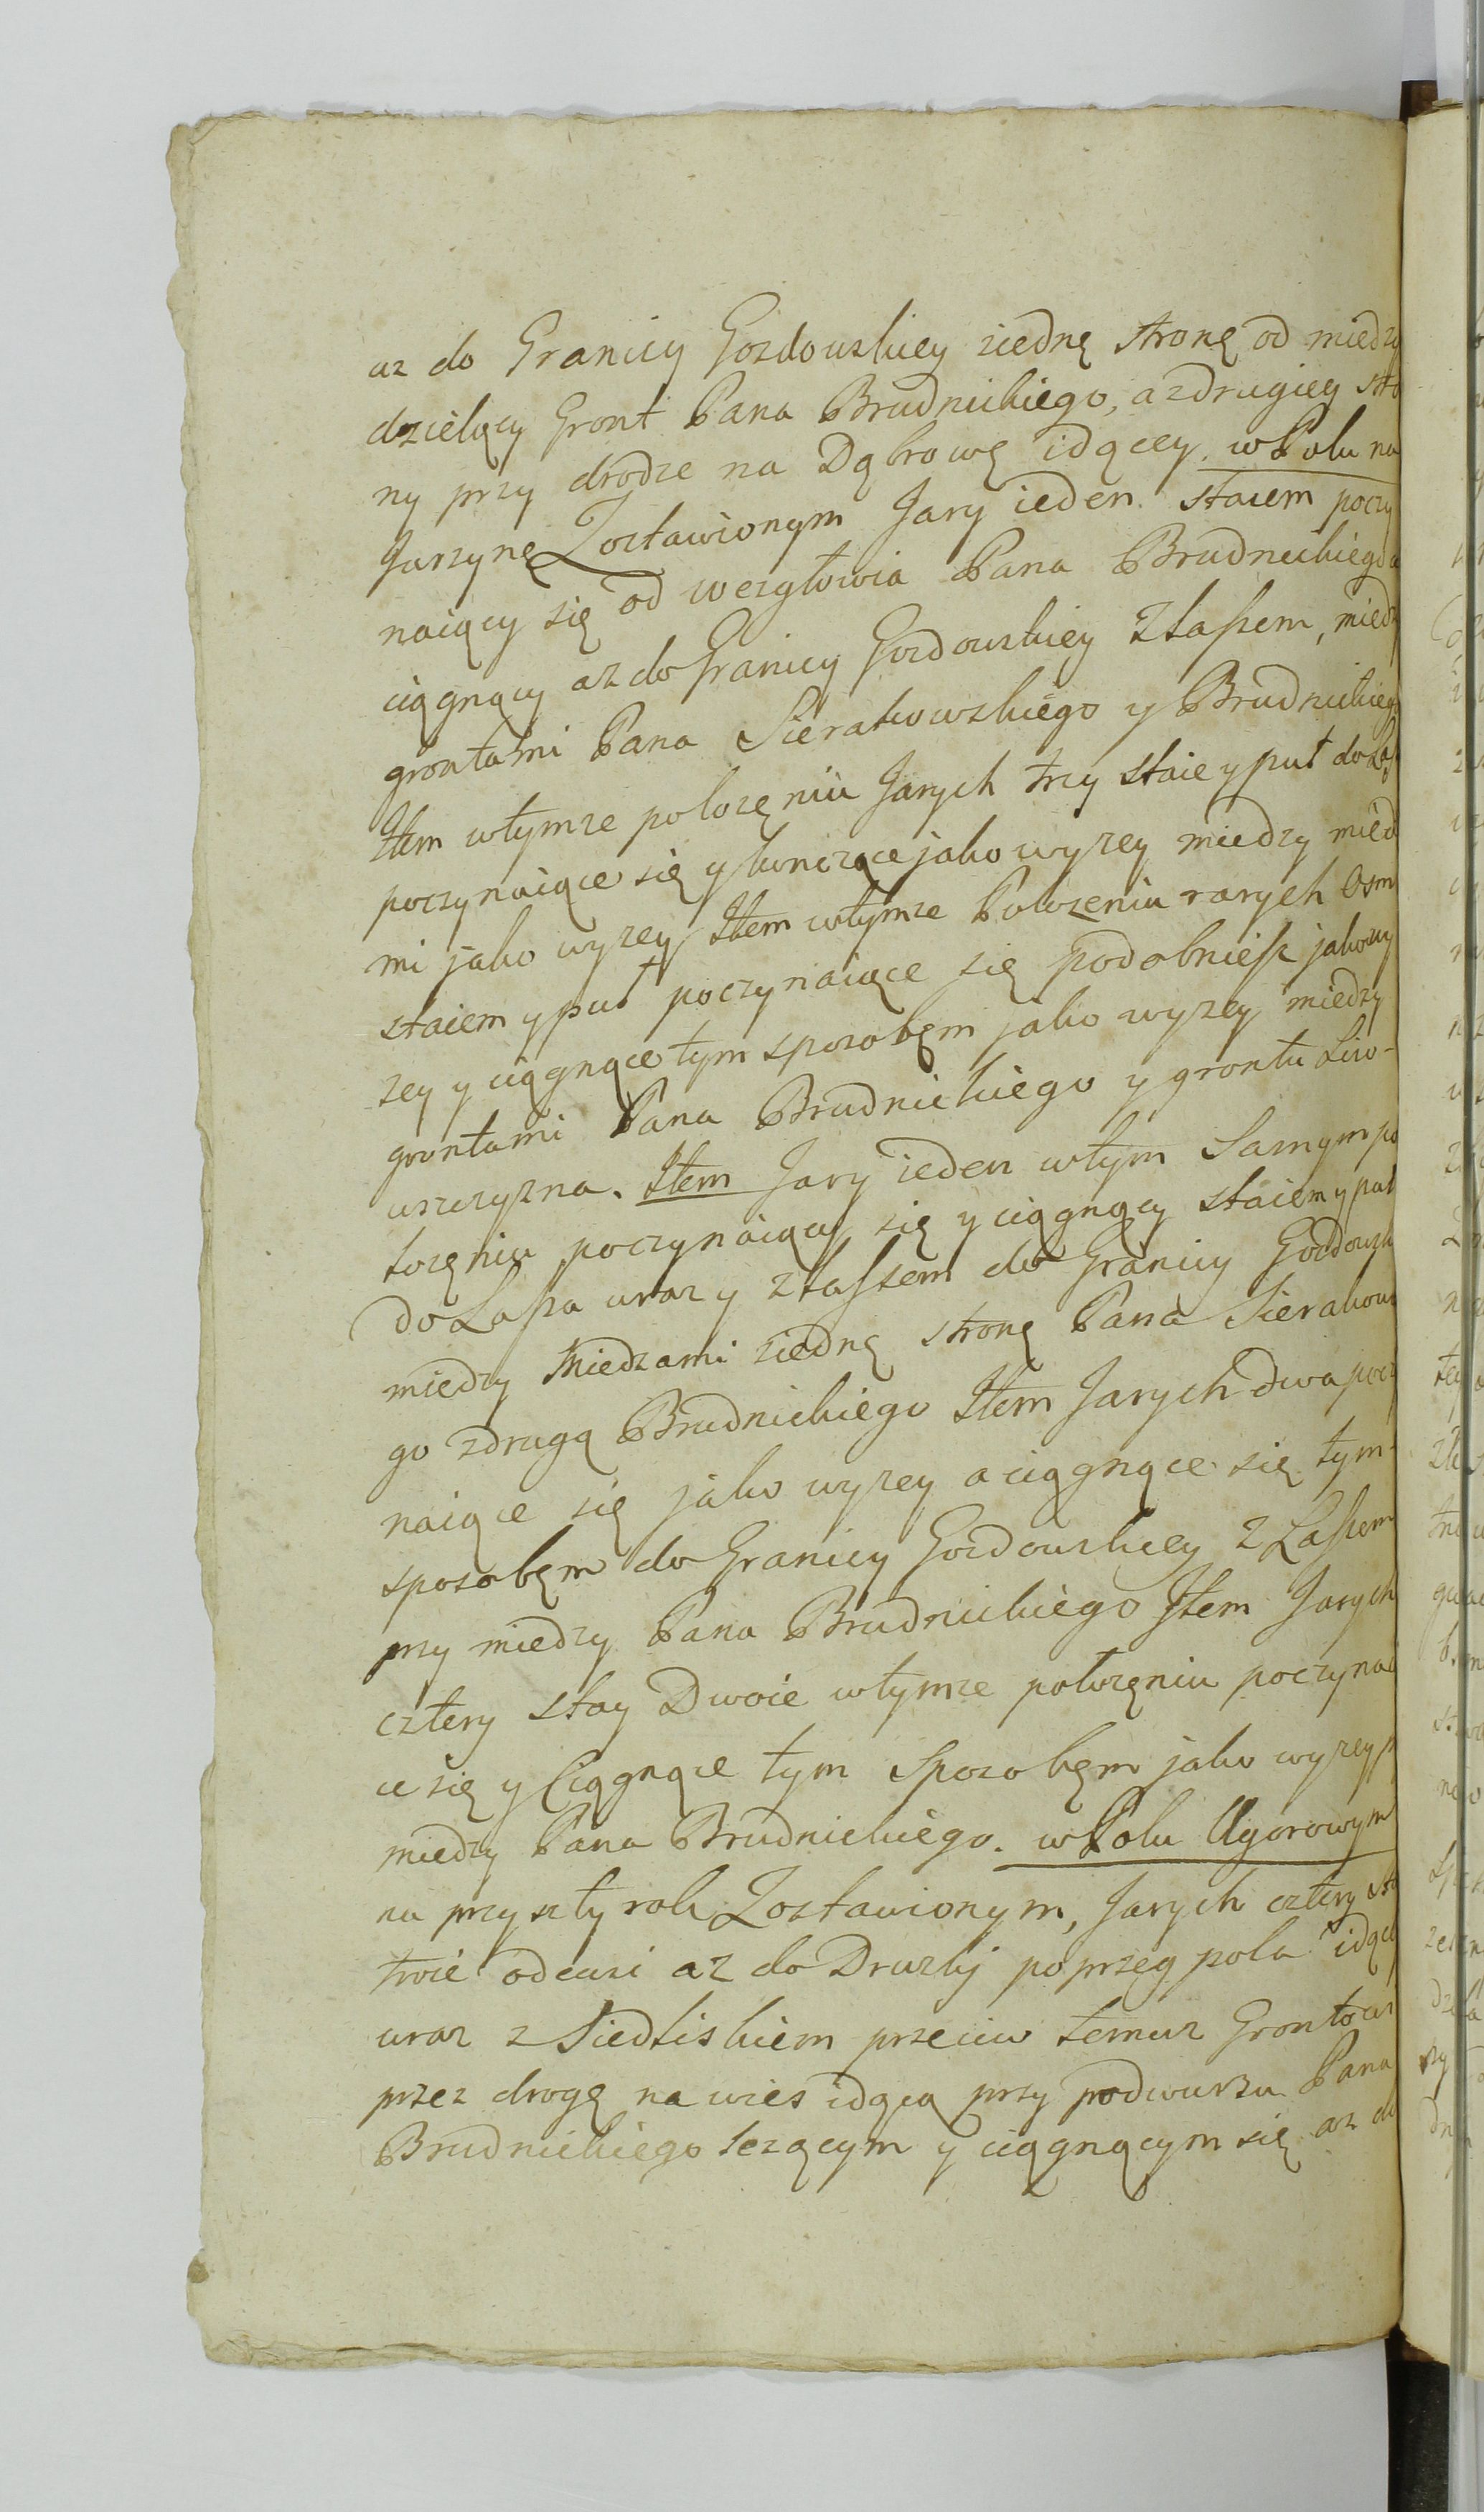 az do Granicy Gozdowskiey ziednę stronę od miedzy
dzielący Gront Pana Brudnickiego, a zdrugiey stro
ny przy drodze na Dąbrowę idącey. w Polu na
Jarzynę Zostawionym Jary ieden staiem poczy
naiący się od wezgłowia Pana Brudnickiego a
ciągnący az do Granicy Gozdowskiey Zlassem, miedz
grontami Pana Sierakowskiego y Brudnickieg
Item wtymze polozęniu Jarych trzy staie y puł do Las
poczynaiące się y kończące jako wyzey miedzy mied
mi jako wyzey Item wtymze Polozeniu zarych Osm
staiem y puł poczynaiące się podobniesz jako wy
zey y ciągnące tym sposobęm jako wyzey miedzy
grontami Pana Brudnickiego y grontu Liso-
wszczyzna. Item Jary ieden wtym Samym po
łozęniu poczynaiący się y ciągnący staiem y puł
do Lassa wraz y zlassem do Granicy Gozdowsk
miedzy Miedzami ziednę stronę Pana Sierakows
go zdrugą Brudnickiego Item Jarych dwa poczy
naiące się jako wyzey a ciągnące się tym
sposobęm do Granicy Gozdowskiey z Lassem
przy miedzy Pana Brudnickiego Item Jarych
cztery stay Dwoie wtymze połozęniu poczynai
ce się y Ciągnące tym Sposobęm jako wyzey p
miedzy Pana Brudnickiego. w Polu Ugorowym
na przyszły rok Zostawionym, Jarych cztery st
troie odcasi az do Druzky poprzeg pola idące
wraz z Siedliskiem przeciw temuz Grontowi
przez drogę na wies idącą przy podwurzu Pana
Brudnickiego lezącym y ciągnącym się az do